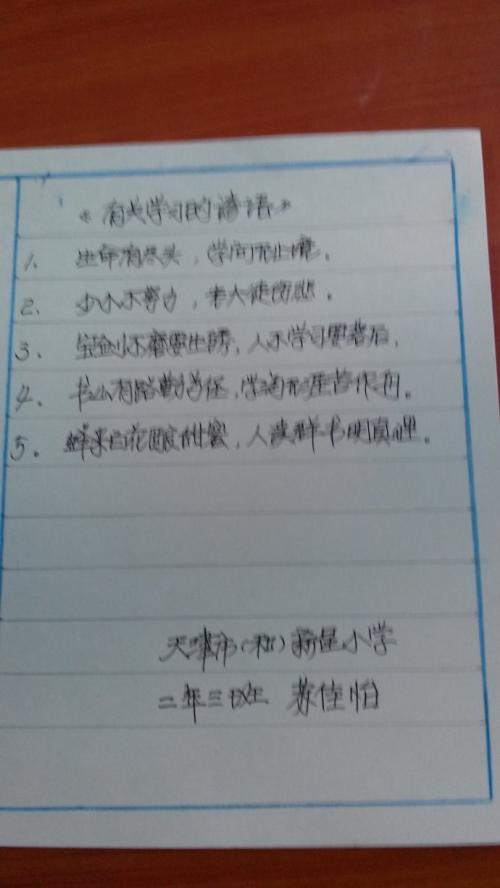 《有关学习的谚语》
1. 生命有尽头，学问无止境。
2. 少小不努力，老大徒伤悲。
3. 宝剑不磨要生锈，人不学习要落后。
4. 书山有路勤为径，学海无涯苦作舟。
5. 蜂采百花酿甜蜜，人读群书明真理。
天津市（私）新星小学
二年三班 苏佳怡